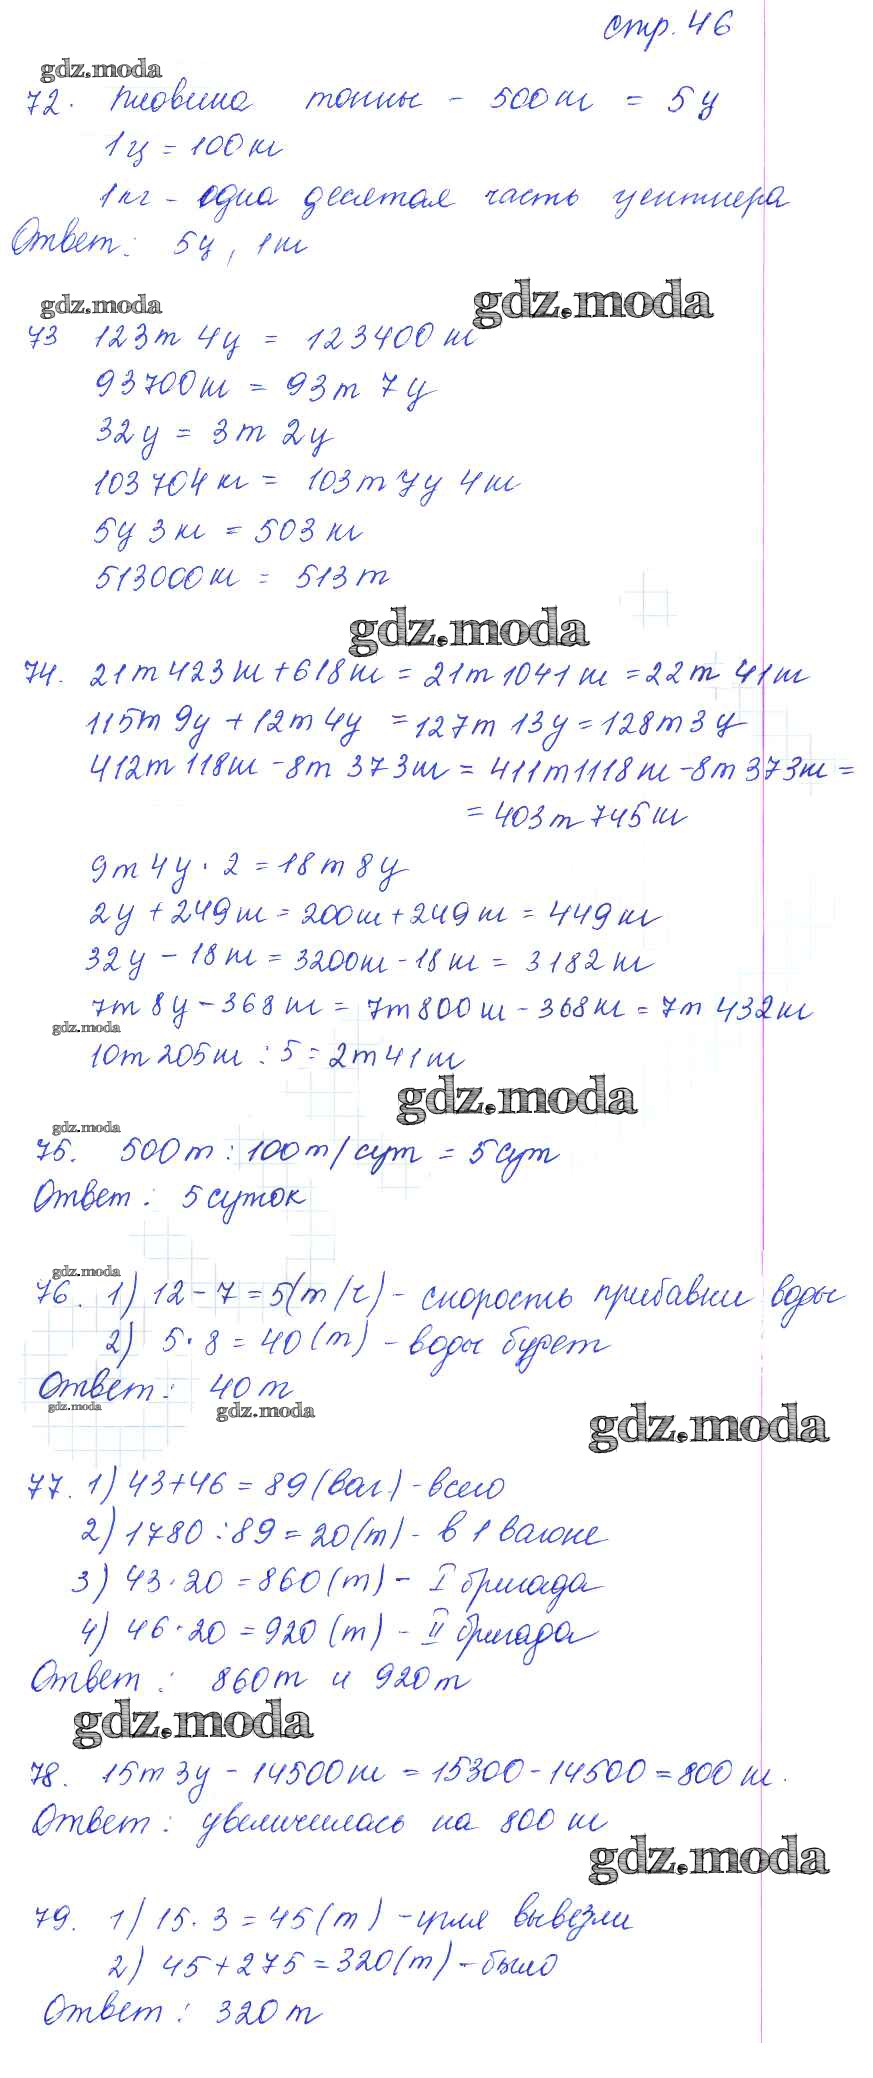 стр. 46
gdz.moda
72. Половина тонны - 500кг = 5ц
1ц = 100кг
1кг - одна десятая часть центнера
Ответ: 5ц, 1кг
gdz.moda gdz.moda
73 123т 4ц = 123400кг
93700кг = 93т 7ц
32ц = 3т 2ц
103704кг = 103т 7ц 4кг
5ц 3кг = 503кг
513000кг = 513т
gdz.moda
74. 21т 423кг + 618кг = 21т 1041кг = 22т 41кг
115т 9ц + 12т 4ц = 127т 13ц = 128т 3ц
412т 118кг - 8т 373кг = 411т 1118кг - 8т 373кг =
= 403т 745кг
9т 4ц · 2 = 18т 8ц
2ц + 249кг = 200кг + 249кг = 449кг
32ц - 18кг = 3200кг - 18кг = 3182кг
7т 8ц - 368кг = 7т 800кг - 368кг = 7т 432кг
gdz.moda
10т 205кг : 5 = 2т 41кг
gdz.moda
gdz.moda
75. 500т : 100т/сут = 5сут
Ответ: 5 суток
gdz.moda
76. 1) 12 - 7 = 5(т/ч) - скорость прибавки воды
2) 5 · 8 = 40 (т) - воды будет
Ответ: 40т
gdz.moda gdz.moda gdz.moda
77. 1) 43+46 = 89 (ваг.) - всего
2) 1780 : 89 = 20(т) - в 1 вагоне
3) 43 · 20 = 860 (т) - I бригада
4) 46 · 20 = 920 (т) - II бригада
Ответ: 860т и 920т
gdz.moda
78. 15т 3ц - 14500кг = 15300 - 14500 = 800кг.
Ответ: увеличилась на 800кг
gdz.moda
79. 1) 15 · 3 = 45 (т) - угля вывезли
2) 45 + 275 = 320(т) - было
Ответ: 320т